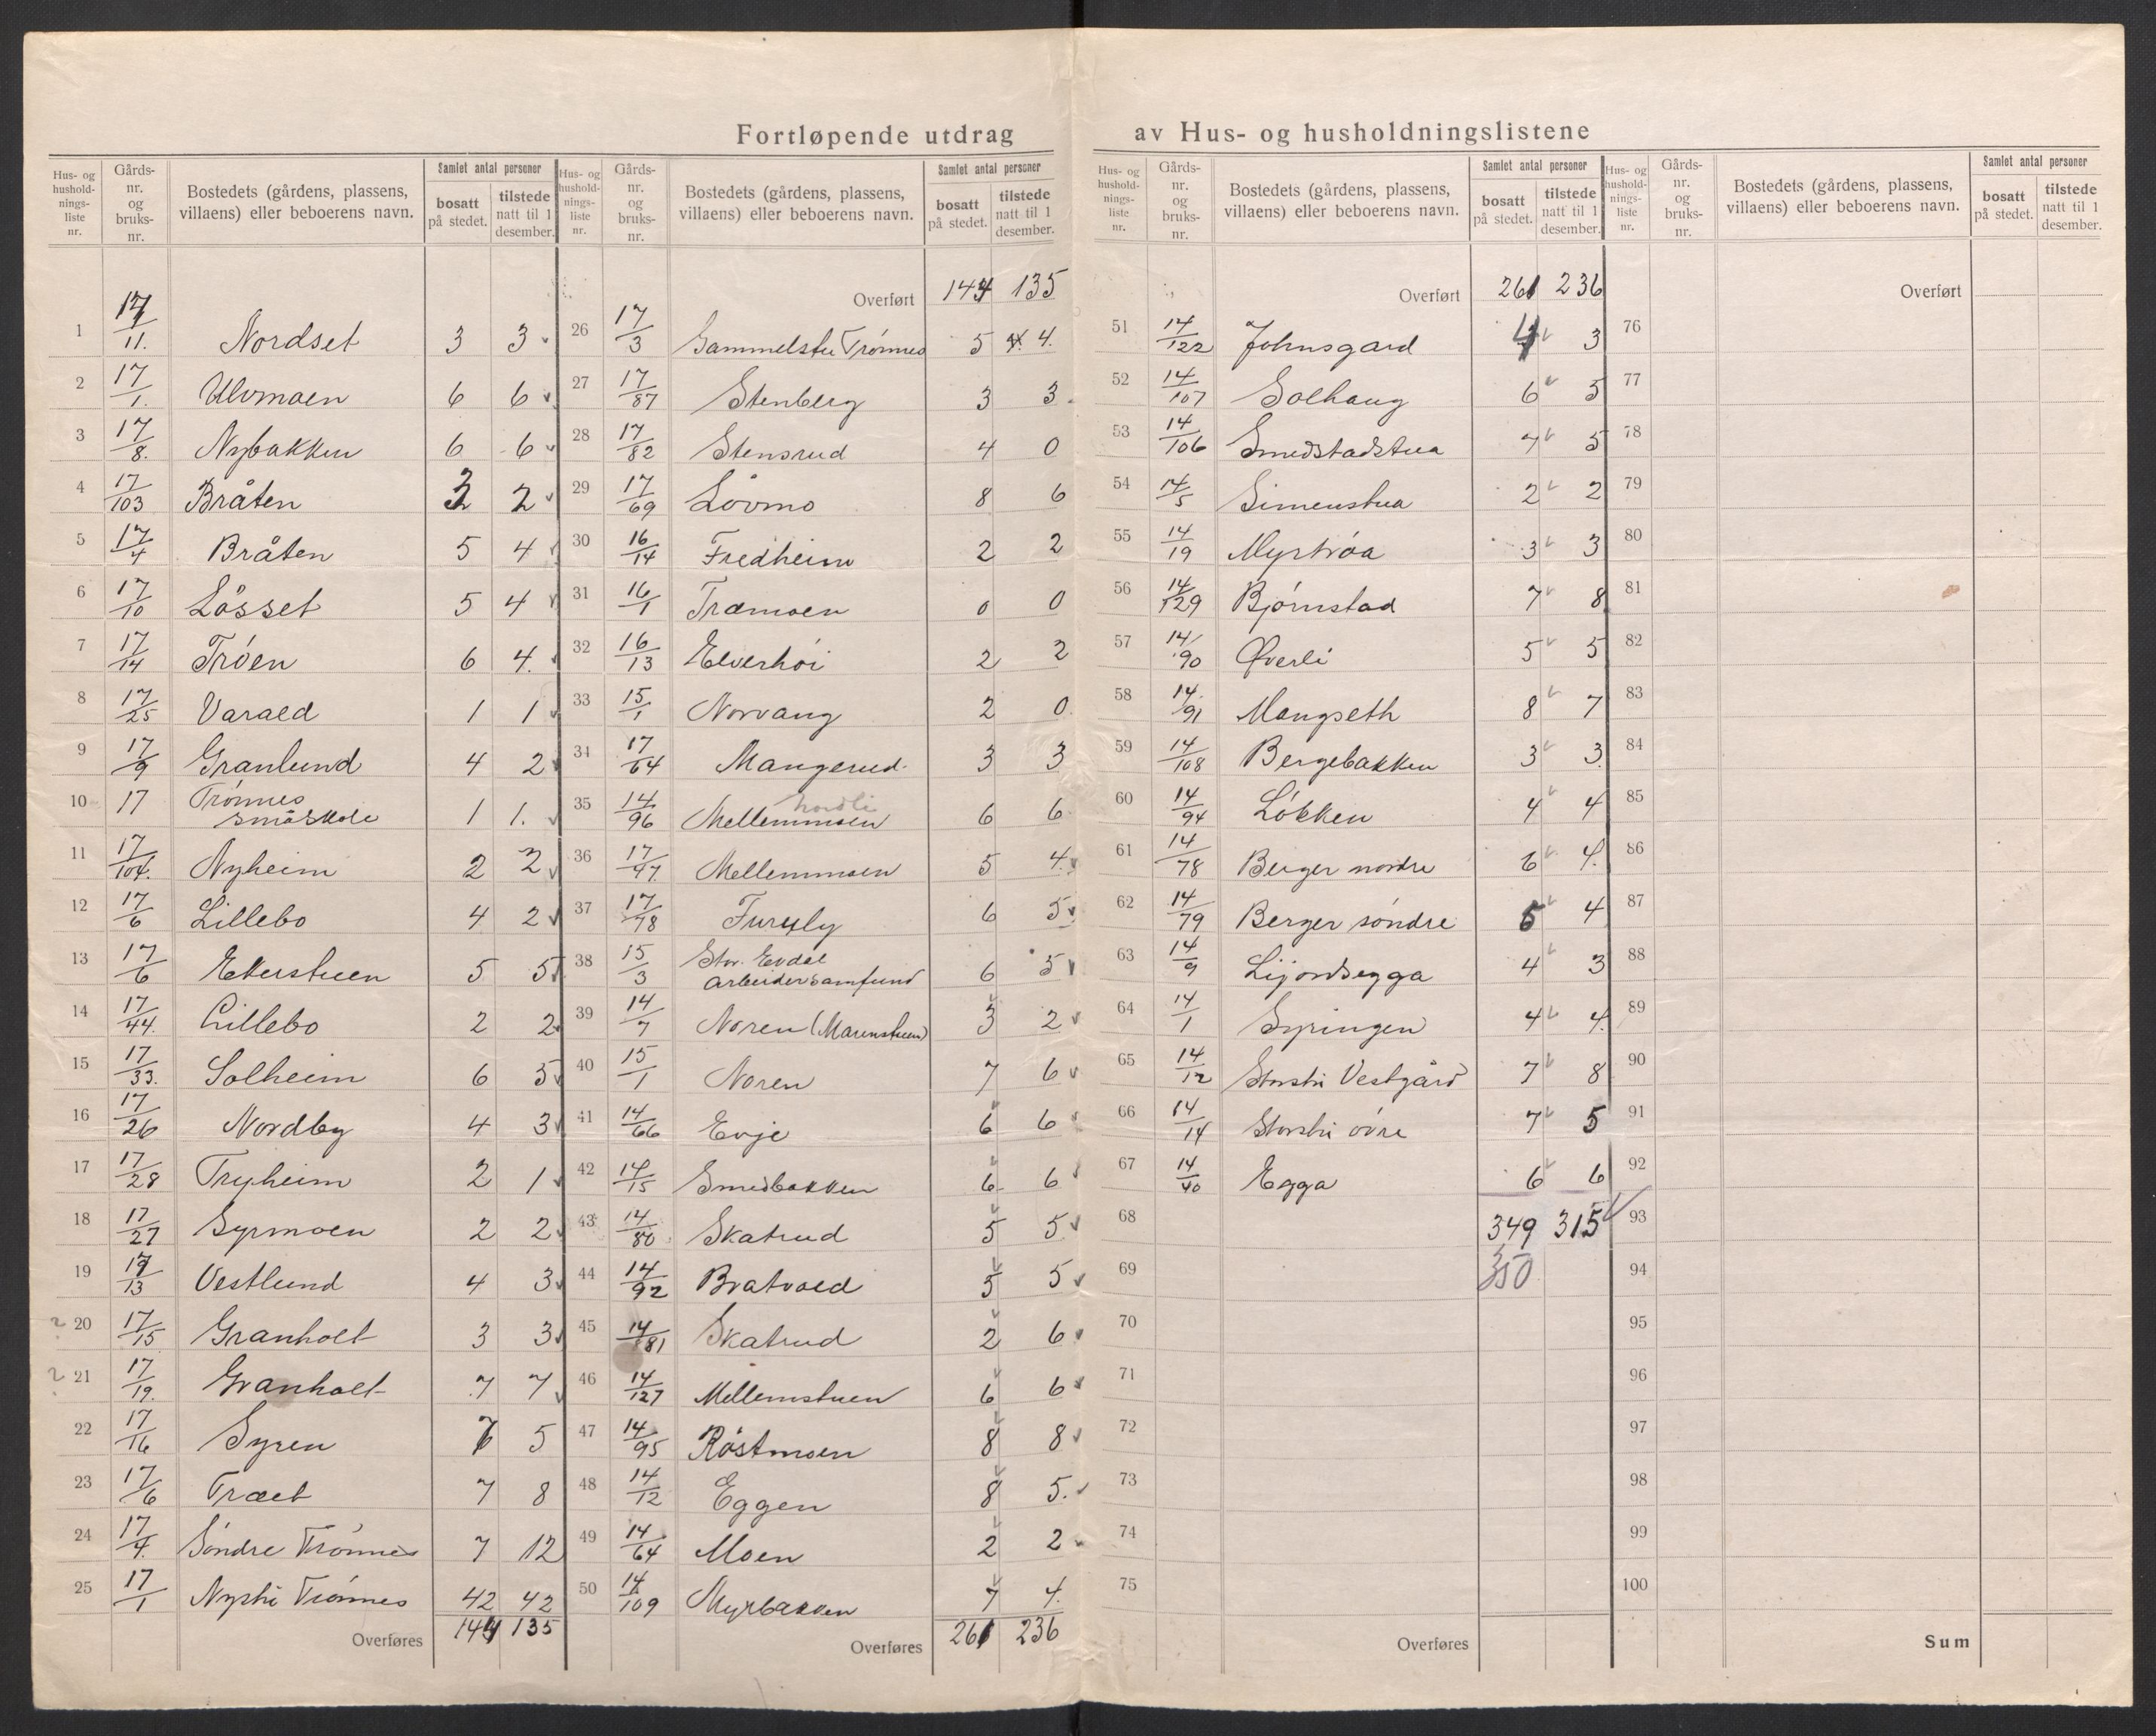 Fortløpende utdrag av Hus- og husholdningslistene
Hus- og husholdnings-liste nr. | Gårds-nr. og bruks-nr. | Bostedets (gårdens, plassens, villaens) eller beboerens navn. | Samlet antal personer | bosatt på stedet. | tilstede natt til 1 desember.
1 17/11. Nordset 3 3
2 17/1. Ulvmoen 6 6
3 17/8. Nybakken 6 6
4 17/103 Bråten 2
5 17/4 Bråten 5 4
6 17/10 Låsset 5 4
7 17/14 Trøen 6 4.
8 17/25 Varald 1 1
9 17/9 Granlund 4 2
10 17 Trønnes småskole 1 1.
11 17/104. Nyheim 2 2
12 17/6 Lillebo 4 2
13 17/6 Ekerstuen 5 5
14 17/44. Lillebo 2 2
15 17/33. Solheim 6 5
16 17/26 Nordby 4 3
17 17/28 Tryheim 2 1
18 17/27 Syrmoen 2 2
19 17/13 Vestlund 4 3
20 17/15 Granholt 3 3
21 17/19. Granholt 7 7
22 17/16 Syren 5
23 17/6 Træet 7 8
24 17/4. Søndre Trønnes 7 12
25 17/1 Nystu Trønnes 42 42
Overføres 144 135
Hus- og husholdnings-liste nr. | Gårds-nr. og bruks-nr. | Bostedets (gårdens, plassens, villaens) eller beboerens navn. | Samlet antal personer | bosatt på stedet. | tilstede natt til 1 desember.
Overført 144 135
26 17/3 Gammelstu Trønnes 5 4.
27 17/87 Stenberg 3 3
28 17/82 Stensrud 4 0
29 17/69 Løvmo 8 6
30 16/14 Fredheim 2 2
31 16/1 Tramoen 0 0
32 16/13 Elverhøi 2 2
33 15/1 Norvang 2 0
34 17/64 Mangerud 3 3
35 14/96 Mellemmoen nordli 6 6
36 17/47. Mellemmoen 5 4.
37 17/78 Furuly 6 5
38 15/3 Stor. Evdal arbeidersamfund 6 5
39 14/7 Noren (Marenstuen) 3 2
40 15/1 Noren 7 6
41 14/66 Evje 6 6
42 14/15 Smedbakken 6 6
43 14/80 Skatrud 5 5
44 14/92 Bratvold 5 5
45 14/81 Skatrud 2 6
46 14/127 Mellemstuen 6 6
47 14/95 Røstmoen 8 8
48 14/12 Eggen 8 5.
49 14/64 Moen 2 2
50 14/109 Myrbakken 7 4.
Overføres 261 236
Hus- og husholdnings-liste nr. | Gårds-nr. og bruks-nr. | Bostedets (gårdens, plassens, villaens) eller beboerens navn. | Samlet antal personer | bosatt på stedet. | tilstede natt til 1 desember.
Overført 261 236
51 14/122 Johnsgard 4 3
52 14/107 Solhaug 6 5
53 14/106 Smedstadstua 7 5
54 14/5 Simenstua 2 2
55 14/19 Myrtrøa 3 3
56 14/129 Bjørnstad 7 8
57 14/90 Øverli 5 5
58 14/91 Mangseth 8 7
59 14/108 Bergebakken 3 3
60 14/94 Løkken 4 4
61 14/78 Berger nordre 6 4.
62 14/79 Berger søndre 5 4
63 14/9 Lijordsegga 4 3
64 14/1 Syringen 4 4.
65 14/12 Storstu Vestgård 7 8
66 14/14 Storstu øvre 7 5
67 14/40 Egga 6 6
68 349 315
69 350
70
71
72
73
74
75
Overføres
Hus- og husholdnings-liste nr. | Gårds-nr. og bruks-nr. | Bostedets (gårdens, plassens, villaens) eller beboerens navn. | Samlet antal personer | bosatt på stedet. | tilstede natt til 1 desember.
Overført
76
77
78
79
80
81
82
83
84
85
86
87
88
89
90
91
92
93
94
95
96
97
98
99
100
Sum